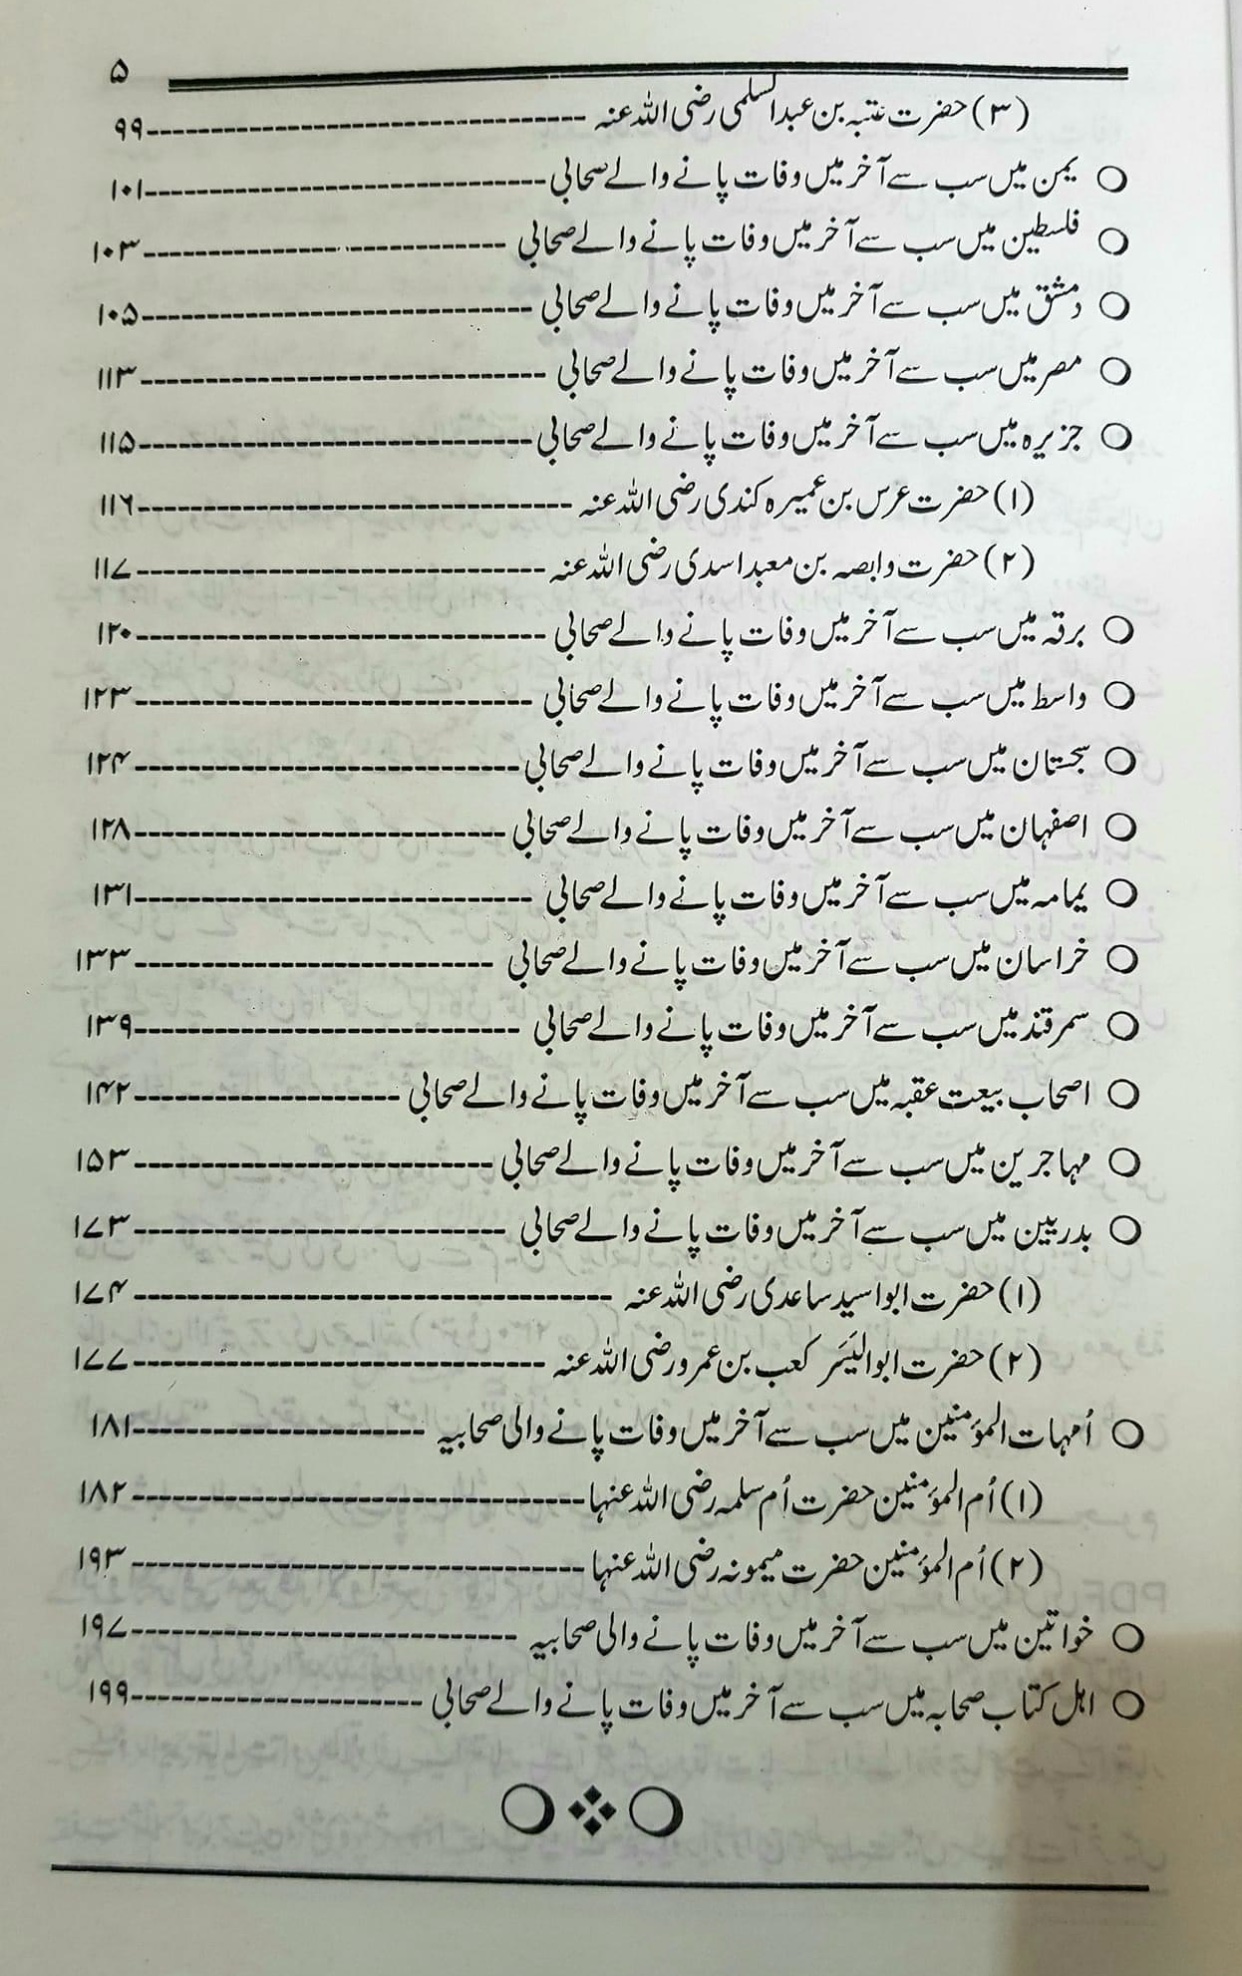 ۵
(۳) حضرت عتبہ بن عبدالسلمی رضی اللہ عنہ ۹۹
یمن میں سب سے آخر میں وفات پانے والے صحابی ۱۰۱
فلسطین میں سب سے آخر میں وفات پانے والے صحابی ۱۰۳
دمشق میں سب سے آخر میں وفات پانے والے صحابی ۱۰۵
مصر میں سب سے آخر میں وفات پانے والے صحابی ۱۱۳
جزیرہ میں سب سے آخر میں وفات پانے والے صحابی ۱۱۵
(۱) حضرت عرس بن عمیرہ کندی رضی اللہ عنہ ۱۱۶
(۲) حضرت وابصہ بن معبد اسدی رضی اللہ عنہ ۱۱۷
برقہ میں سب سے آخر میں وفات پانے والے صحابی ۱۲۰
واسط میں سب سے آخر میں وفات پانے والے صحابی ۱۲۳
سجستان میں سب سے آخر میں وفات پانے والے صحابی ۱۲۴
اصفہان میں سب سے آخر میں وفات پانے والے صحابی ۱۲۸
یمامہ میں سب سے آخر میں وفات پانے والے صحابی ۱۳۱
خراسان میں سب سے آخر میں وفات پانے والے صحابی ۱۳۳
سمرقند میں سب سے آخر میں وفات پانے والے صحابی ۱۳۹
اصحاب بیعت عقبہ میں سب سے آخر میں وفات پانے والے صحابی ۱۴۲
مہاجرین میں سب سے آخر میں وفات پانے والے صحابی ۱۵۳
بدریین میں سب سے آخر میں وفات پانے والے صحابی ۱۷۳
(۱) حضرت ابو اسید ساعدی رضی اللہ عنہ ۱۷۴
(۲) حضرت ابوالیَسَر کعب بن عمرو رضی اللہ عنہ ۱۷۷
اُمہات المؤمنین میں سب سے آخر میں وفات پانے والی صحابیہ ۱۸۱
(۱) اُم المؤمنین حضرت اُم سلمہ رضی اللہ عنہا ۱۸۲
(۲) اُم المؤمنین حضرت میمونہ رضی اللہ عنہا ۱۹۳
خواتین میں سب سے آخر میں وفات پانے والی صحابیہ ۱۹۷
اہل کتاب صحابہ میں سب سے آخر میں وفات پانے والے صحابی ۱۹۹